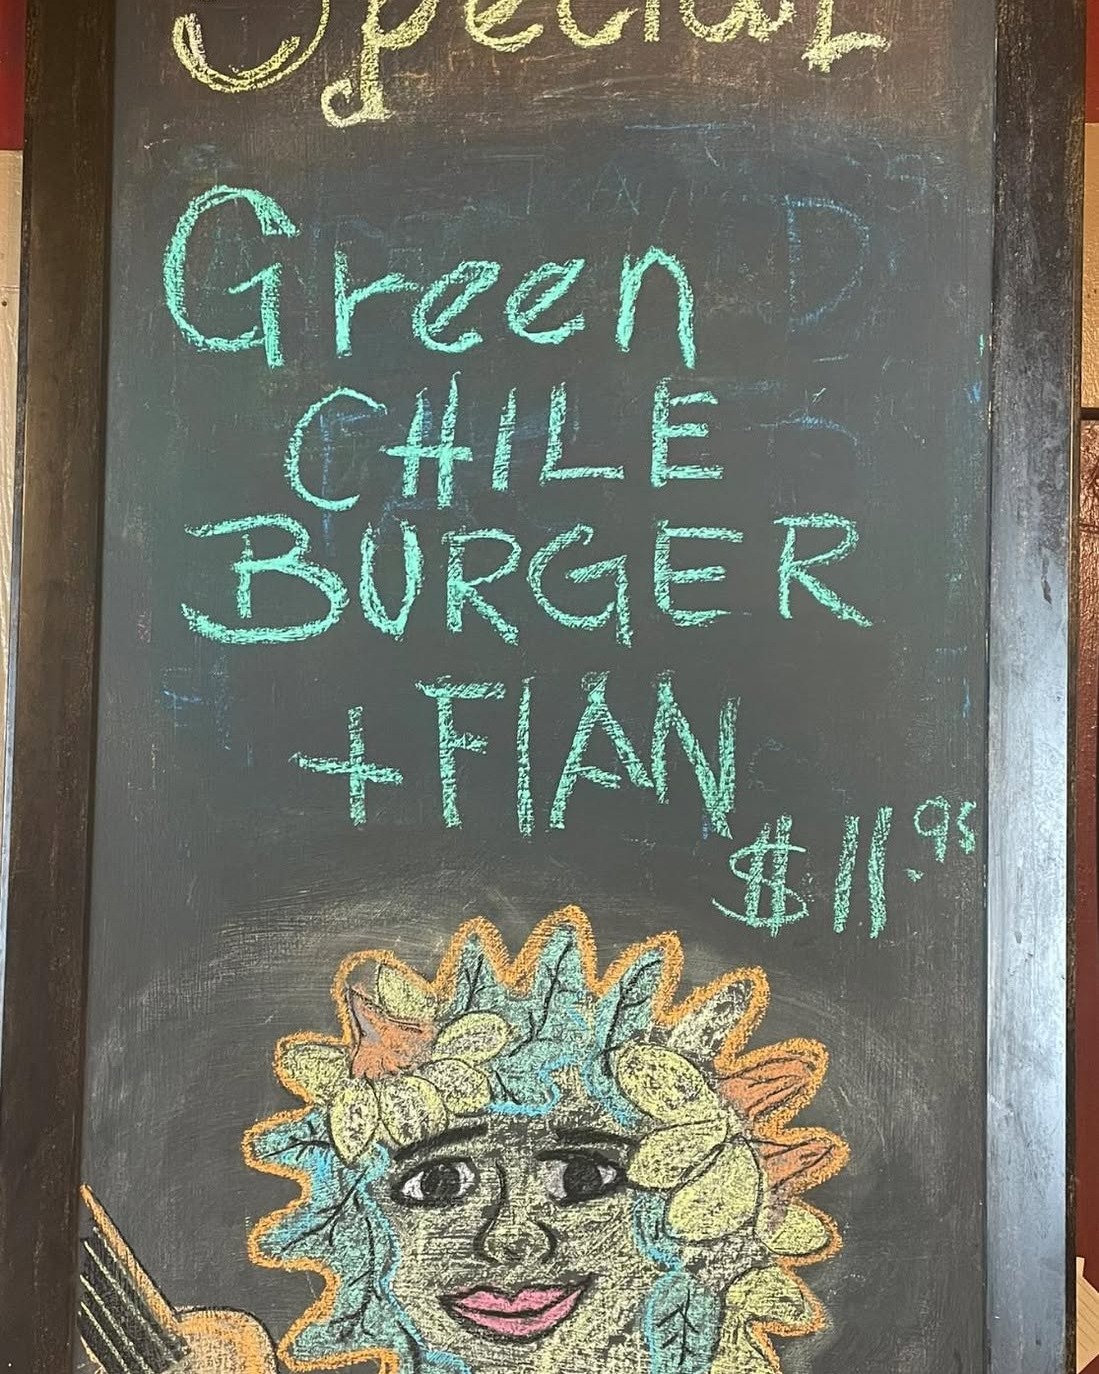 Special
Green
CHILE
BURGER
+ FlAN
$11.95